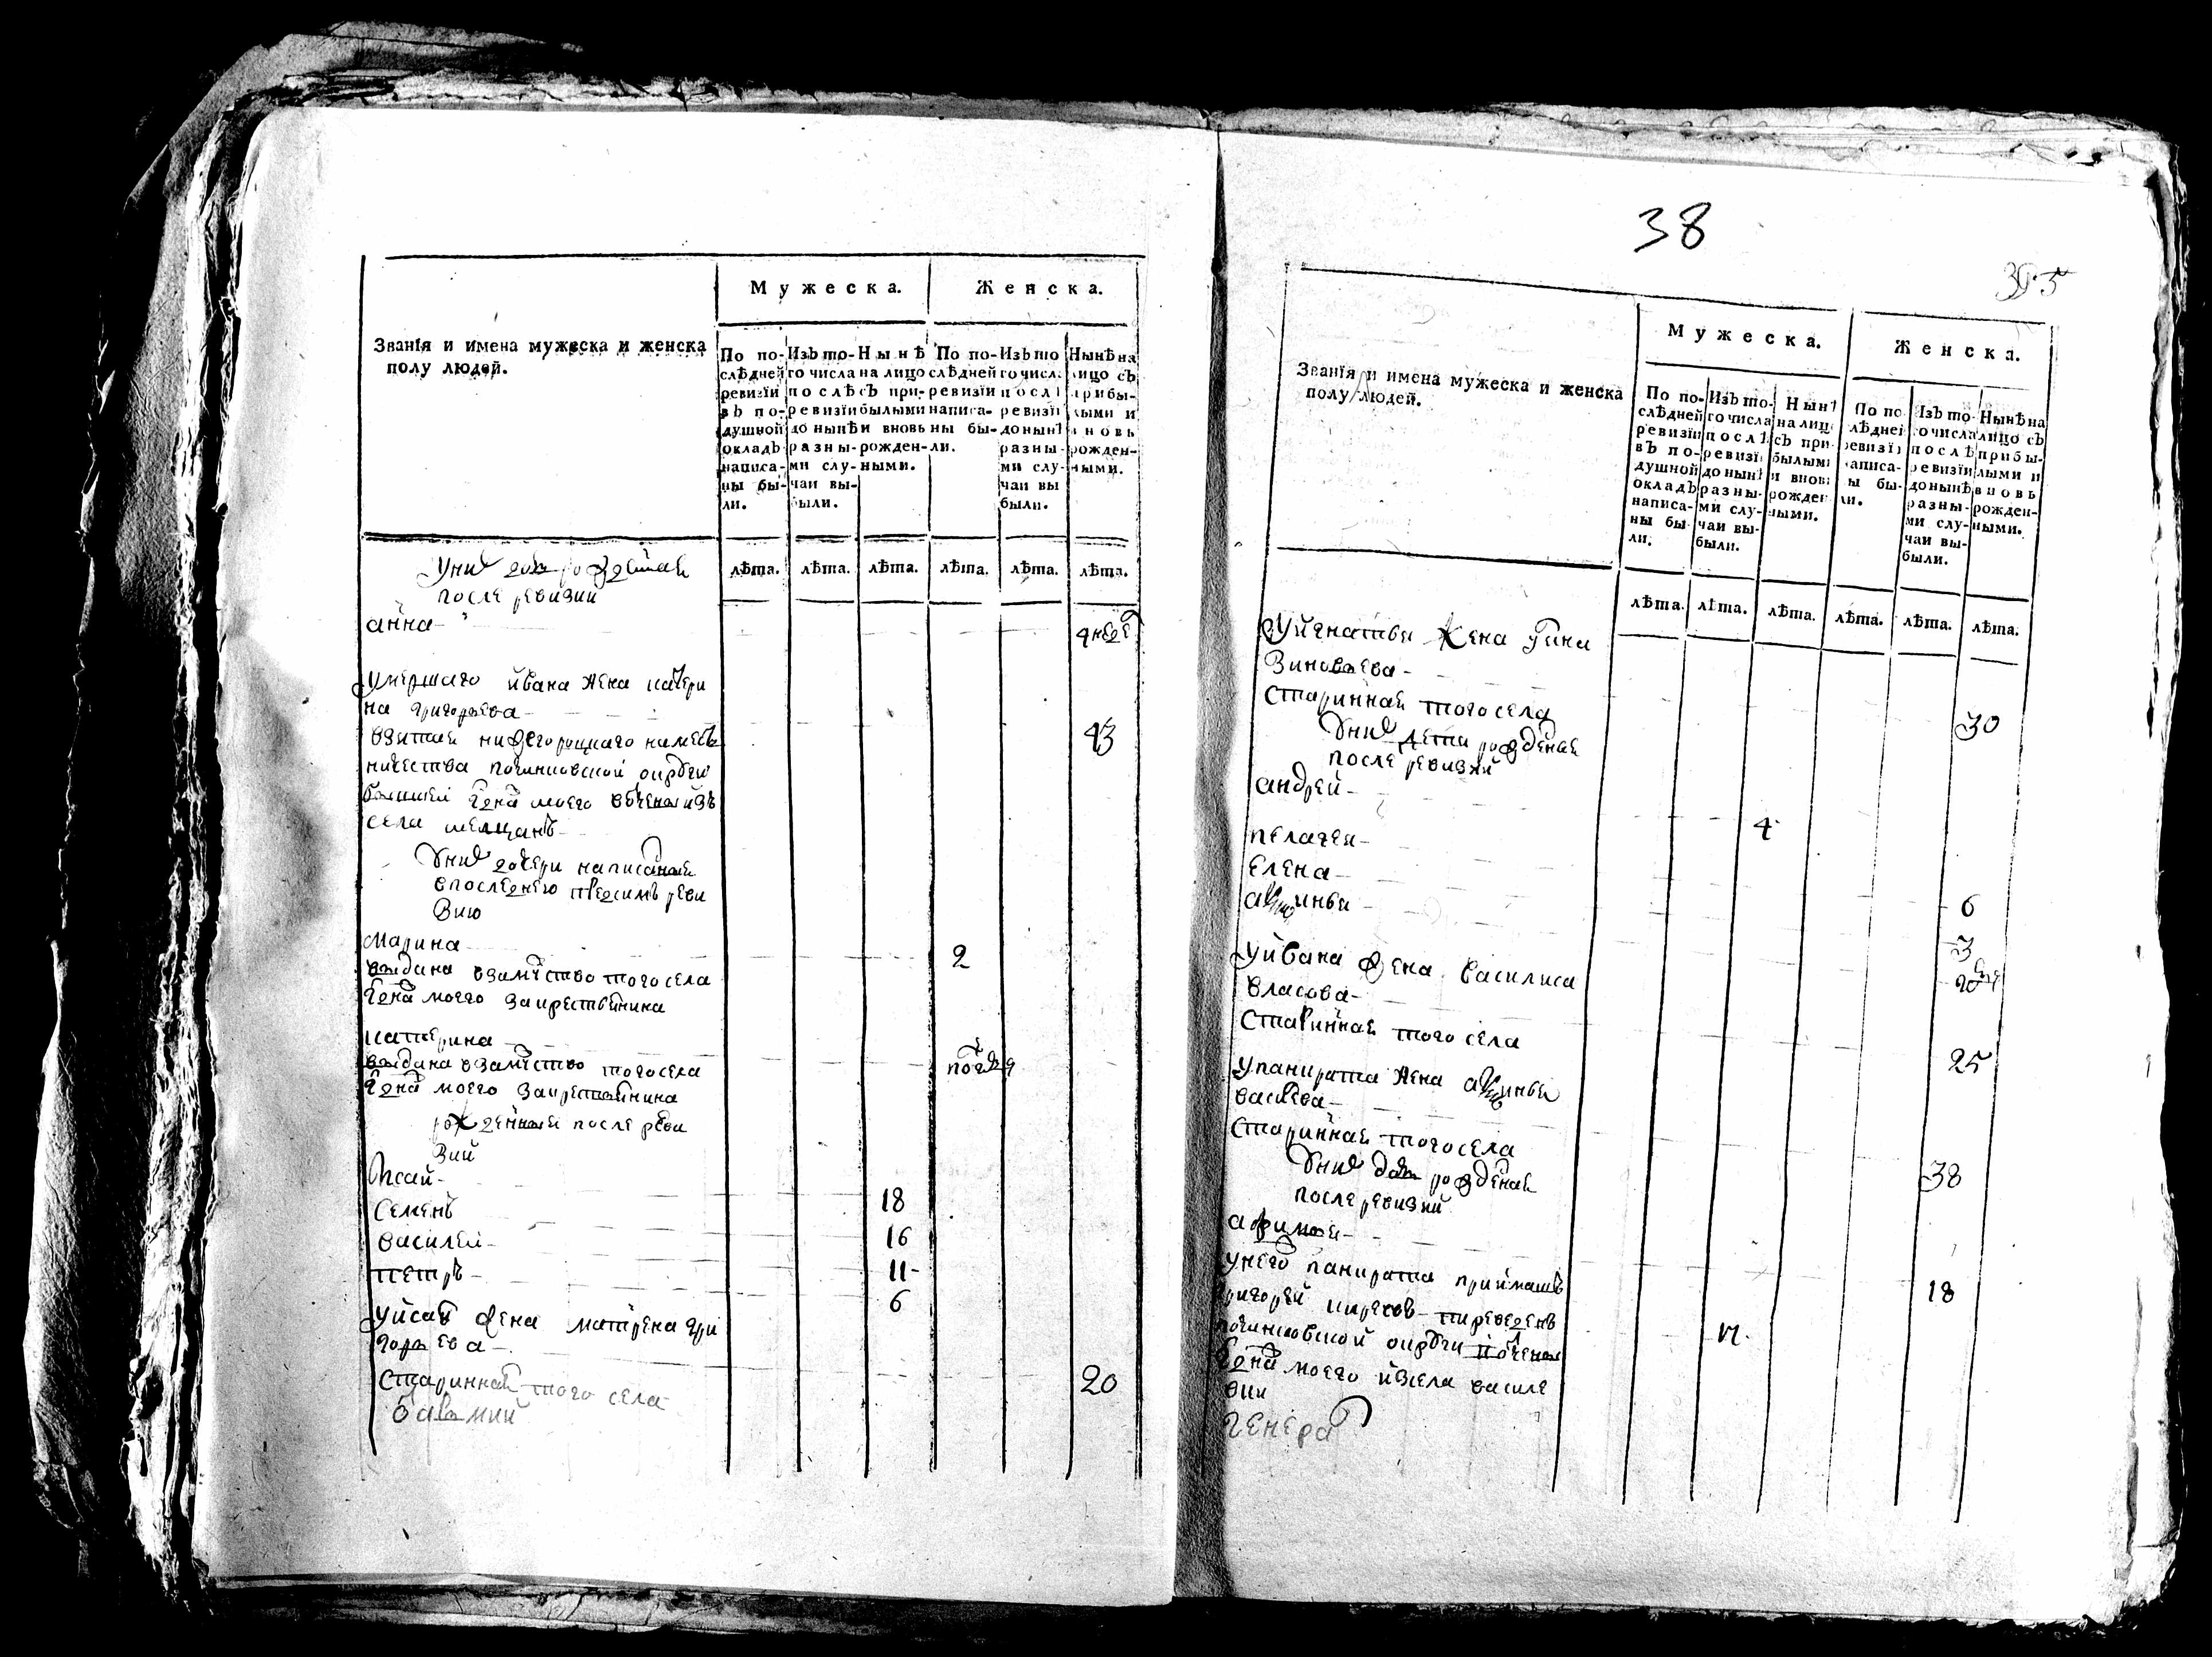 Званїя и имена мужеска и женска
полу людей.
Мужеска.
Женска.
По по-
слѣдней
ревизїи
въ по-
душной
окладъ
написа-
ны бы-
ли.
Изъ то-
го числа
послѣ
ревизїи
до нынѣ
разны-
ми слу-
чаи вы-
были.
Нынѣ
на лицо
съ при-
былыми
и вновь
рожден-
ными.
По по-
слѣдней
ревизїи
написа-
ны бы-
ли.
Изъ то
го числ
посл
ревизїи
до нынѣ
разны-
ми слу-
чаи вы
были.
Нынѣ на
лицо съ
прибы-
лыми и
вновь
рожден-
ными.
лѣта. лѣта. лѣта. лѣта. лѣта. лѣта.
после ревизии
анна
умершаго ивана жена катери
на григорьева
43
взятая нижегороцкаго намес
ничества починковской округи
моего вочены изъ
села
уней дочери написаные
впоследнею пред симъ реви
зию
марина 2
выдана взамуство тогосела
моего закрестьянина
катерина
выдана взамуство тогосела
моего закрестьянина
рожденныя после реви
зии
Исай 18
Семенъ 16
василей 11
петръ 6
уисая жена матрена гри
горьева 20
старинная того села
38
Званїя и имена мужеска и женска
полу людей.
Мужеска.
Женска.
По по-
слѣдней
ревизїи
въ по-
душной
окладъ
написа-
ны бы
ли.
Изъ то-
го числа
послѣ
ревизї
до нынѣ
разны-
ми слу-
чаи вы-
были.
Нынѣ
на лицо
съ при-
былыми
и вновь
рожден
ными.
По по
слѣдней
ревизї
написа-
ны бы-
ли.
Изъ то-
го числа
послѣ
ревизїи
до нынѣ
разны-
ми слу-
чаи вы-
были.
Нынѣ на
лицо съ
прибы-
лыми и
вновь
рожден-
ными.
лѣта. лѣта. лѣта. лѣта. лѣта. лѣта.
уйгнатьи жена
Зиновьева 30
старинная того села
уней дети рожденые
после ревизии
андрей 4
пелагеи 6
елена 3
аксиньи
уйвана жена василиса
власова 25
старинная того села
упанкрата жена аксиньи
38
старинная того села
уней дочь рожденая
после ревизии
афимьи 18
унего панкрата приимашъ
григорей переведенъ
починковской округи
моего изсела василе
вки
генера